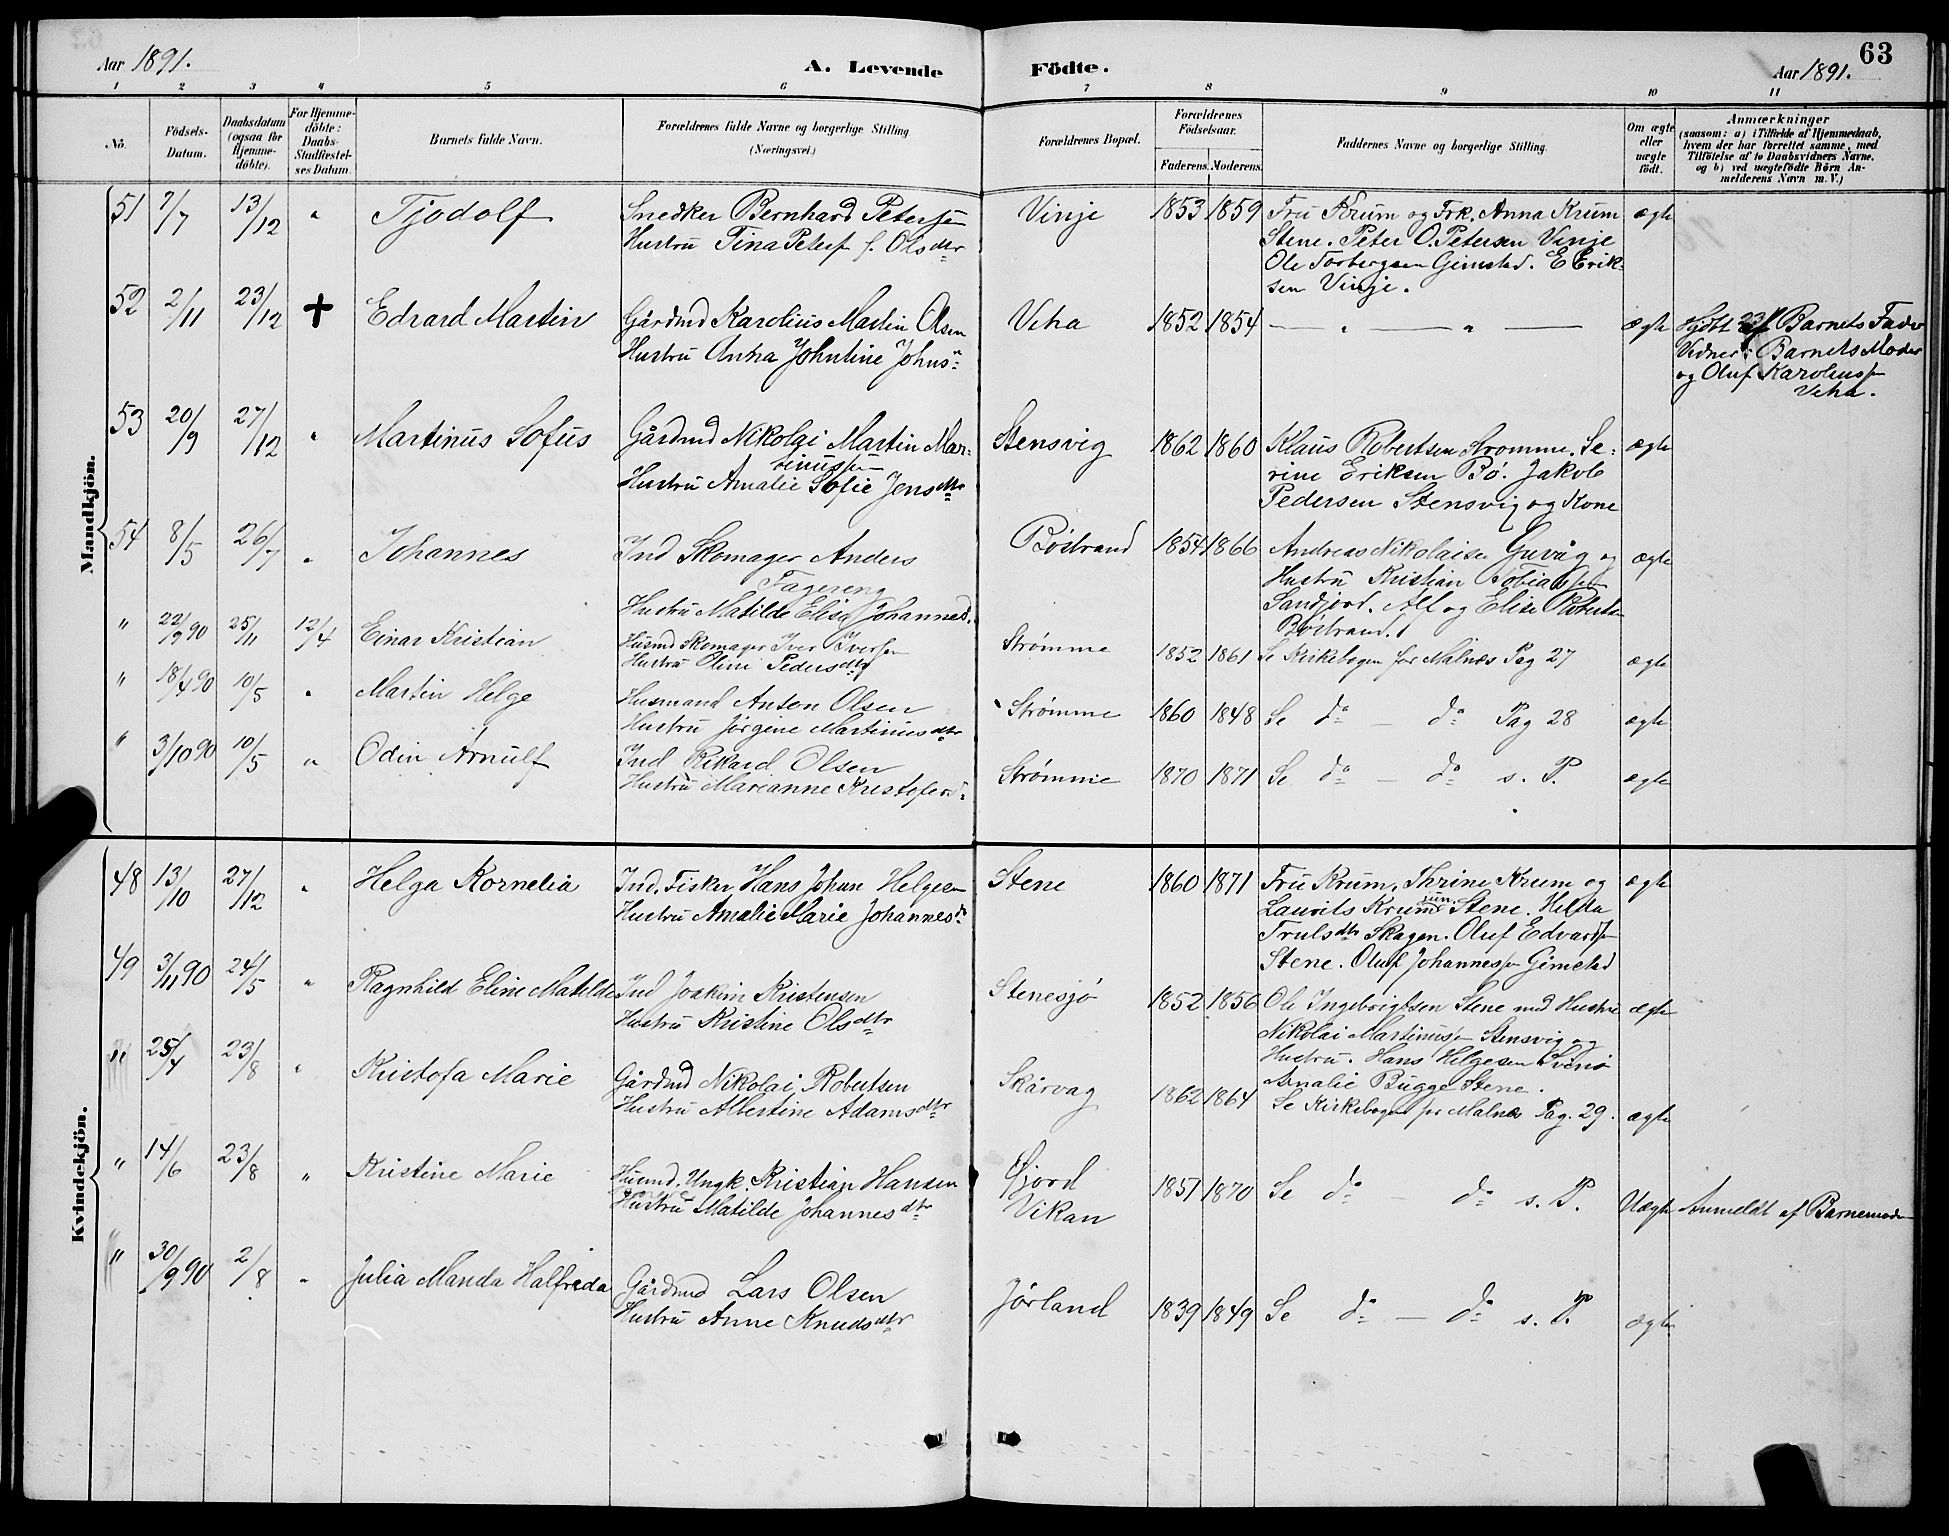 Aar 1891. A. Levende Födte. Aar 1891. 63
1 2 3 4 5 6 7 8 9 10 11
No.
Födsels-
Datum.
Daabsdatum
(ogsaa for
Hjemme-
döbte).
For Hjemme-
döbte:
Daabs-
Stadfæstel-
ses Datum.
Barnets fulde Navn.
Forældrenes fulde Navne og borgerlige Stilling
(Næringsvei.)
Forældrenes Bopæl.
Forældrenes
Födselsaar.
Faderens. Moderens.
Faddernes Navne og borgerlige Stilling.
Om ægte
eller
uægte
födt.
Anmærkninger
(saasom: a) i Tilfælde af Hjemmedaab,
hvem der har forrettet samme, med
Tilföielse af to Daabsvidners Navne.
og b) ved uægtefödte Börn An-
melderens Navn m. V.)
Mandkjön.
51 7/7 13/12 " Tjodolf
Snedker Bernhard Petersen
Hustru Tina Peters f. Olsdtr
Vinje 1853 1859
Fru Krum og Frk. Anna Krum
Stene. Peter O. Petersen Vinje
Ole Torbergsen Gimstad. E Erik-
sen Vinje.
ægte
52 2/11 23/12 + Edvard Martin
Gårdmd Karolius Martin Olsen
Hustru Anna Johntine Johns
Veha 1852 1854 — " — " — ægte
Hjdbt 23/ af Barnets Fader
Vidner: Barnets Moder
og Oluf Karoliuss
Veha.
53 20/9 27/12 " Martinus Sofus
Gårdmd Nikolai Martin Mar-
tinussen
Hustru Amalie Sofie Jensdtr
Stensvig 1862 1860
Klaus Robertsen Strømme. Se-
rine Eriksen Bö. Jakob
Pedersen Stensvig og Kone
ægte
54 8/5 26/7 " Johannes
Ind Skomager Anders
Fagereng
Hustru Matilde Elise Johannesd.
Bøstrand 1854 1866
Andreas Nikolaisen Guvåg og
Hustru Kristian Tobiassen
Sandjord. Alf og Elise Roberts
Bøstrand.
ægte
" 22/9 90 25/11 12/4 Einar Kristian
Husmd Skomager Iver Iversen
Hustru Oline Pedersdtr
Strømme 1852 1861 Se Kirkebogen for Malnes Pag 27 ægte
" 18/4 90 10/5 " Martin Helge
Husmand Anton Olsen
Hustru Jørgine Martinusdtr
Strømme 1860 1848 Se do — do Pag 28 ægte
" 3/10 90 10/5 " Odin Arnulf
Ind Rikard Olsen
Hustru Marianne Kristofers
Strømme 1870 1871 Se do — do s. P. ægte
Kvindekjön.
48 13/10 27/12 " Helga Kornelia
Ind. Fisker Hans Johan Helgesen
Hustru Amalie Marie Johannesd
Stene 1860 1871
Fru Krum, Thrine Krum og
Laurits Krum jun. Stene. Helda
Trulsdtr Skagen. Oluf Edvards
Stene. Oluf Johannessen Gimstad
ægte
49 3/11 90 24/5 " Ragnhild Eline Matilde
Ind Joakim Kristensen
Hustru Kristine Olsdtr
Stenesjø 1852 1856
Ole Ingebrigtsen Stene med Hustru
Nikolai Martinuss Stensvig og
Hustru. Hans Helgesen Svinø
Amalie Bugge Stene.
ægte
" 25/4 23/8 " Kristofa Marie
Gårdmd Nikolai Robertsen
Hustru Albertine Adamsdtr
Skårvag 1862 1864 Se Kirkebogen for Malnes Pag. 29. ægte
" 14/6 23/8 " Kristine Marie
Husmd. Ungk. Kristian Hansen
Hustru Matilde Johannesdtr
Fjord
Vikan
1851 1870 Se do — do s. P. Uægte Anmeldt af Barnemoder
" 30/9 90 2/8 " Julia Manda Halfreda
Gårdmd Lars Olsen
Hustru Anne Knudsdtr
Jørland 1839 1849 Se do — do s. P. ægte